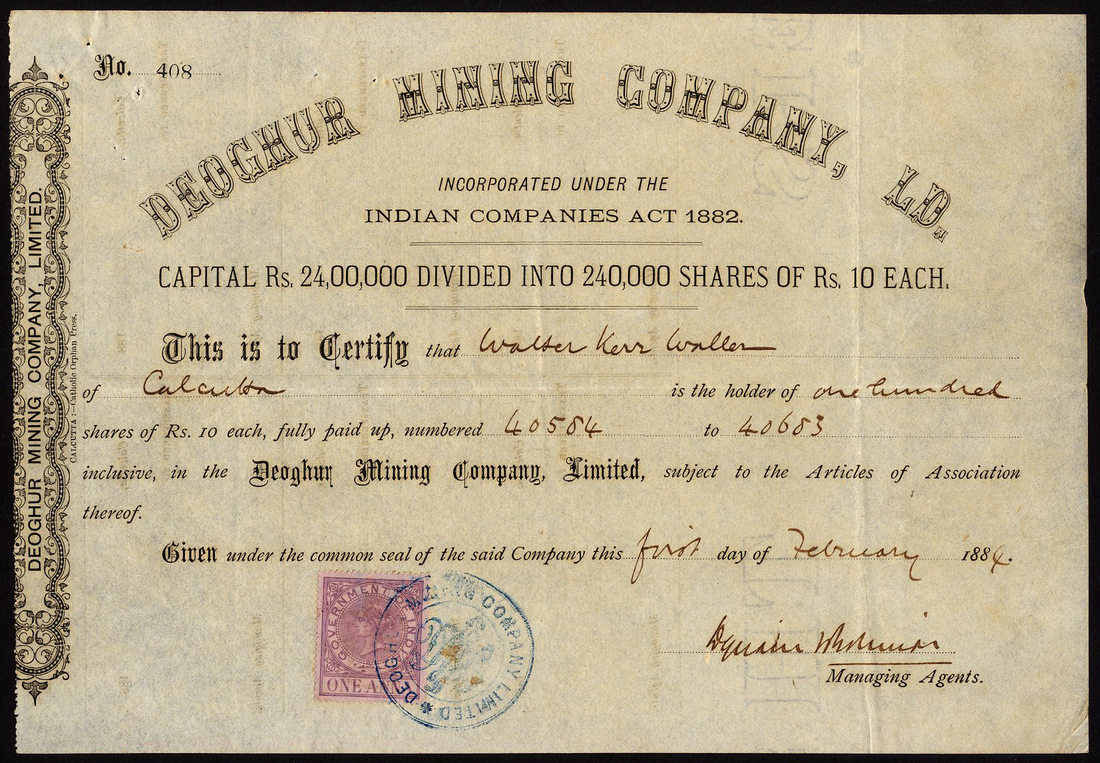 No. 408
DEOGHUR MINING COMPANY, LD.
INCORPORATED UNDER THE
INDIAN COMPANIES ACT 1882.
CAPITAL Rs. 24,00,000 DIVIDED INTO 240,000 SHARES OF Rs. 10 EACH.
This is to Certify that Walter Kerr Waller
of Calcutta is the holder of one hundred
shares of Rs. 10 each, fully paid up, numbered 40584 to 40683
inclusive, in the Deoghur Mining Company, Limited, subject to the Articles of Association
thereof.
Given under the common seal of the said Company this first day of February 1884.
Managing Agents.
GOVERNMENT OF INDIA
ONE
DEOGHUR MINING COMPANY LIMITED
DEOGHUR MINING COMPANY, LIMITED.
CALCUTTA :—Catholic Orphan Press.